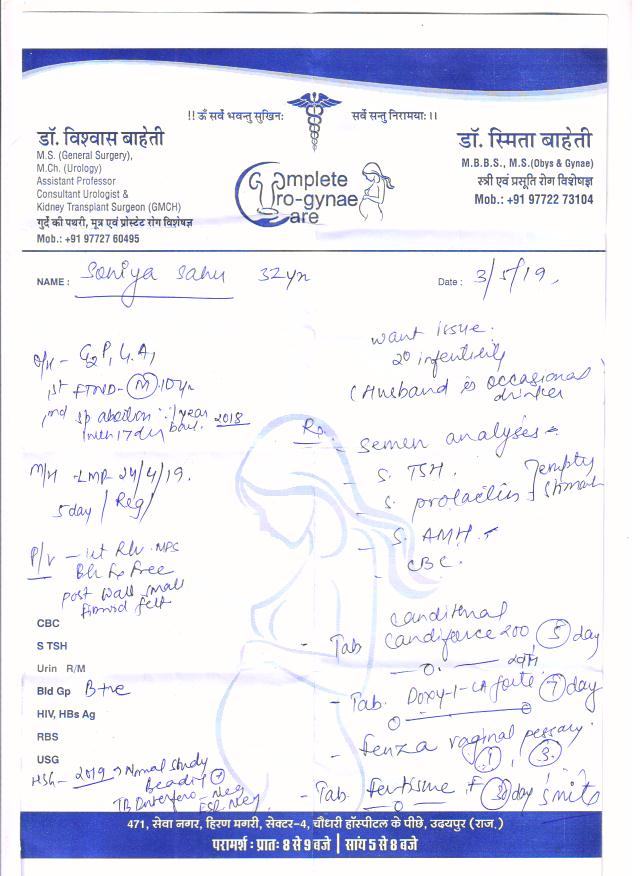 !! ॐ सर्वे भवन्तु सुखिनः सर्वे सन्तु निरामयाः।।
डॉ. विश्वास बाहेती
M.S. (General Surgery),
M.Ch. (Urology)
Assistant Professor
Consultant Urologist &
Kidney Transplant Surgeon (GMCH)
गुर्दे की पथरी, मूत्र एवं प्रोस्टेट रोग विशेषज्ञ
Mob.: +91 97727 60495
Complete
Uro-gynae
Care
डॉ. स्मिता बाहेती
M.B.B.S., M.S.(Obys & Gynae)
स्त्री एवं प्रसूति रोग विशेषज्ञ
Mob.: +91 97722 73104
NAME : Soniya Sahu 32yr Date : 3/5/19,
O/H - G2 P1 L1 A1
1st FTND - M 10yr
2nd sp abortion 1 year 2018
M/H - LMP - 24/4/19.
5 day / Reg
P/V - NPS
free
post wall small
fibroid felt
want issue.
2° infertility
(Husband is occasional
drinker
Rx
- Semen analyses
- S. TSH.
- S. prolactin empty stomach
- S. AMH.
- CBC.
CBC
S TSH
Urin R/M
Bld Gp B+ve
HIV, HBs Ag
RBS
USG
HSG - 2019 → Normal study
Beading +
- Tab Candiforce 200 5 day
- Tab. Doxy-1-LA forte 7 day
- fenza vaginal pessary.
1, 3.
- Tab. fertisure F 30 day
471, सेवा नगर, हिरण मगरी, सेक्टर-4, चौधरी हॉस्पीटल के पीछे, उदयपुर (राज.)
परामर्श : प्रातः 8 से 9 बजे | सांय 5 से 8 बजे